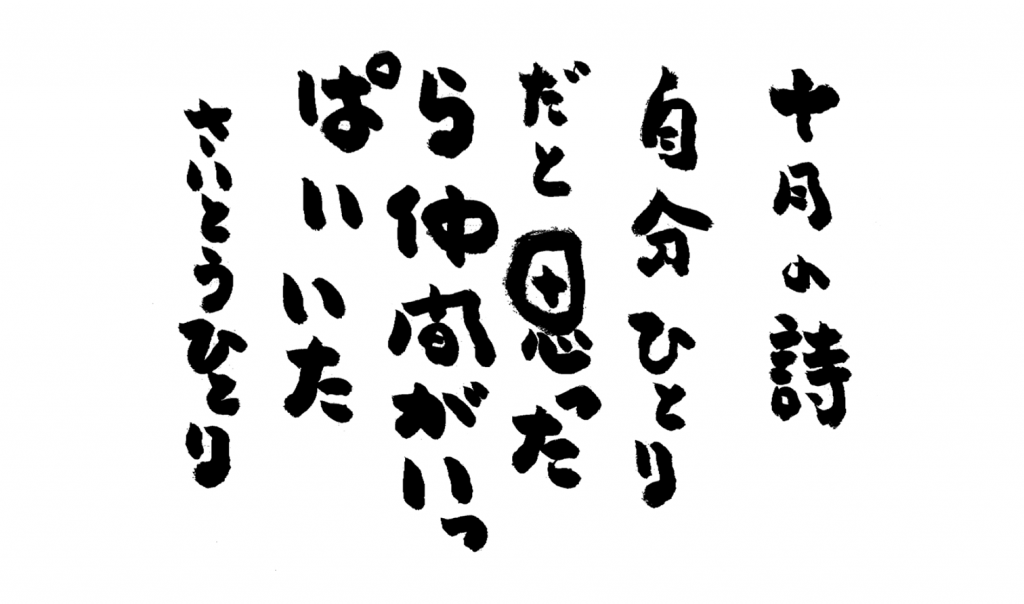 十月の詩
自分ひとり
だと思った
ら仲間がいっ
ぱいいた
さいとうひとり